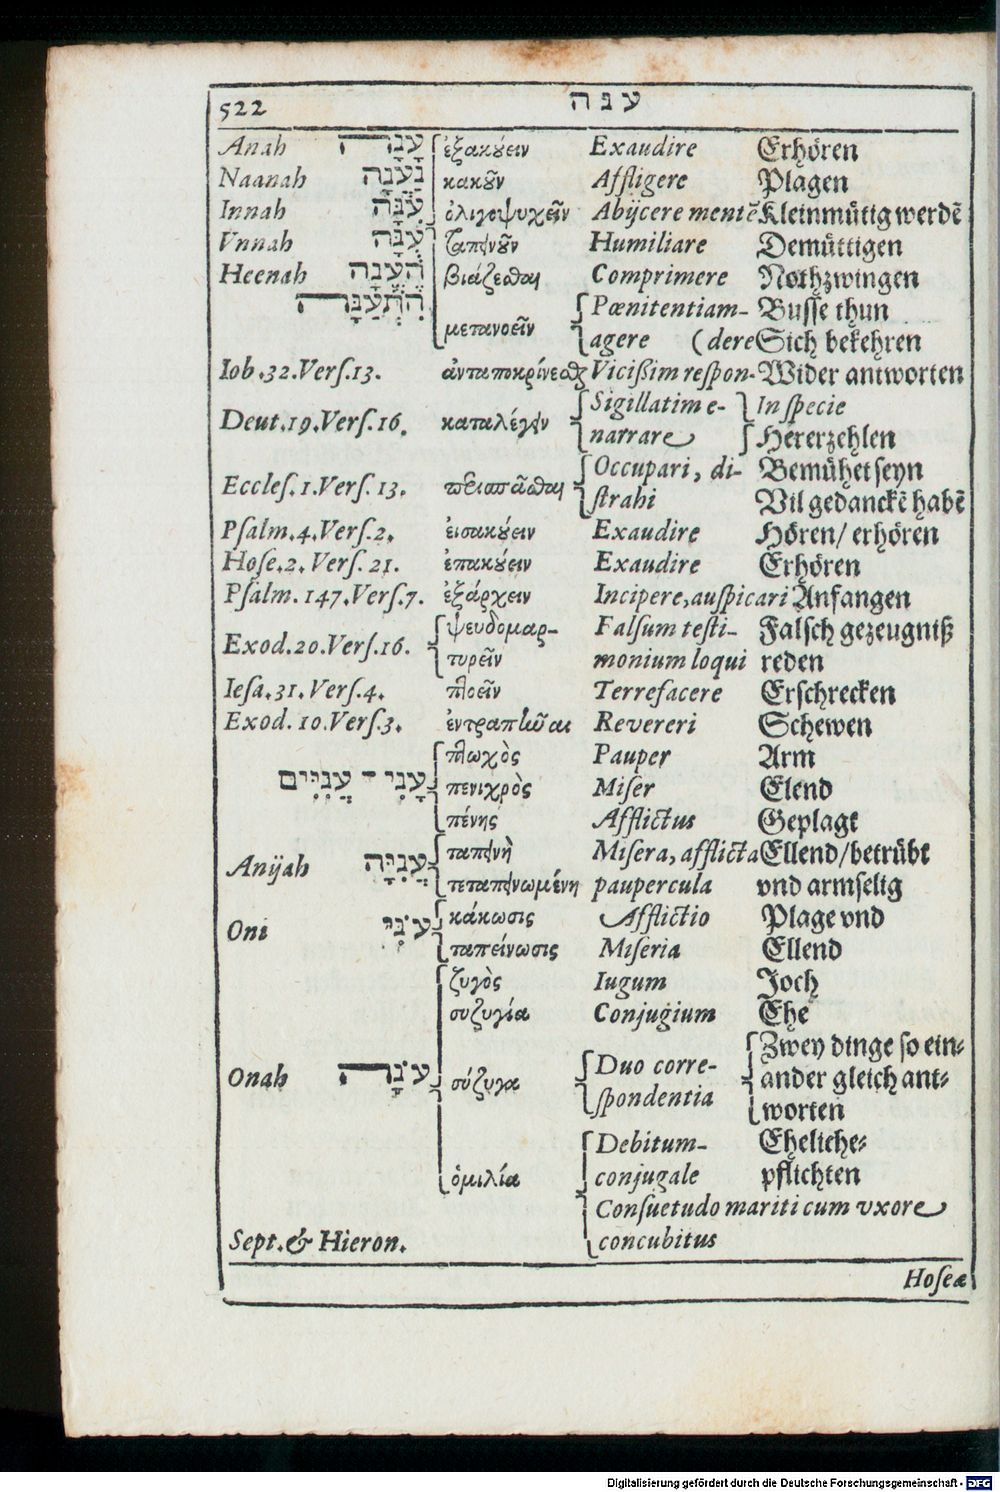 522 ענה
Anah עָנָה ἐξακούειν Exaudire Erhören
Naanah נַעֲנָה κακοῦν Affligere Plagen
Innah עִנָּה ὀλιγοψυχεῖν Abijcere mentē Kleinmütig werdē
Vnnah עֻנָּה ταπεινοῦν Humiliare Demüttigen
Heenah הֶעֱנָה βιάζεσθαι Comprimere Nothzwingen
הִתְעַנָּה μετανοεῖν Pœnitentiam- Busse thun
agere (dere Sich bekehren
Iob.32.Verſ.13. ἀνταποκρίνεσθαι Viciſſim reſpon- Wider antworten
Deut.19.Verſ.16. καταλέγειν Sigillatim e- In ſpecie
narrare Hererzehlen
Eccleſ.1.Verſ.13. περισπᾶσθαι Occupari, di- Bemühet seyn
ſtrahi Vil gedanckē habē
Pſalm.4.Verſ.2. εἰσακούειν Exaudire Hören/ erhören
Hoſe.2.Verſ.21. ἐπακούειν Exaudire Erhören
Pſalm.147.Verſ.7. ἐξάρχειν Incipere, auſpicari Anfangen
Exod.20.Verſ.16. ψευδομαρ- Falſum teſti- Falsch gezeugniß
τυρεῖν monium loqui reden
Ieſa.31.Verſ.4. πτοεῖν Terrefacere Erschrecken
Exod.10.Verſ.3. ἐντραπῆναι Revereri Schewen
πτωχὸς Pauper Arm
עָנִי - עֲנִיִּים πενιχρὸς Miſer Elend
πένης Afflictus Geplagt
Anijah עֲנִיָּה ταπεινὴ Miſera, afflicta Ellend/betrübt
τεταπεινωμένη paupercula vnd armselig
Oni עֹנִי κάκωσις Afflictio Plage vnd
ταπείνωσις Miſeria Ellend
ζυγὸς Iugum Joch
συζυγία Conjugium Ehe
Zwey dinge so ein-
Onah עֹנָה σύζυγα Duo corre- ander gleich ant-
ſpondentia worten
Debitum- Eheliche-
ὁμιλία conjugale pflichten
Conſuetudo mariti cum vxore
Sept.& Hieron. concubitus
Hoſeæ
Digitalisierung gefördert durch die Deutsche Forschungsgemeinschaft - DFG